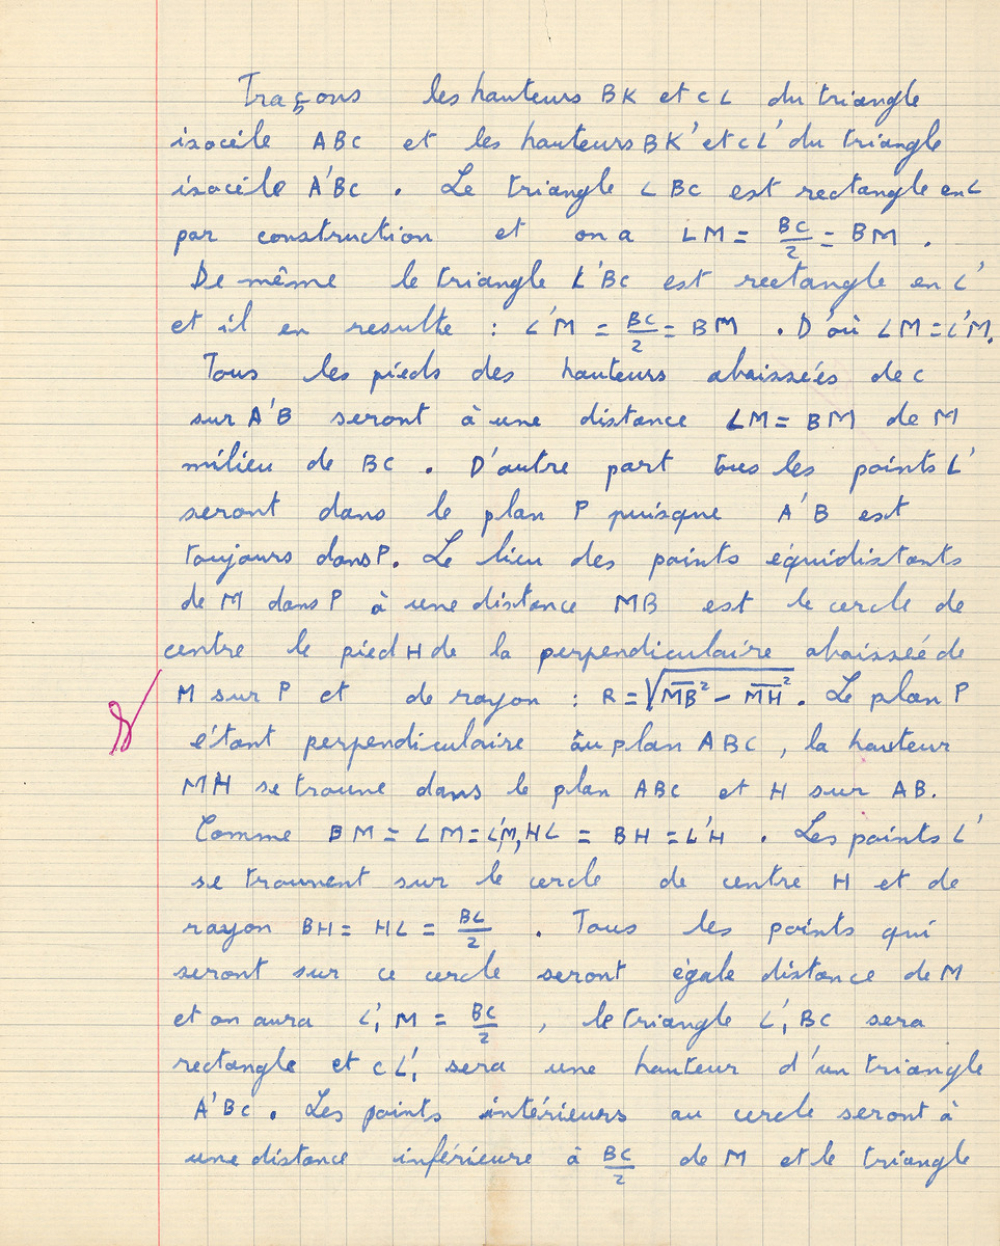 Traçons les hauteurs BK et CL du triangle
isocéle ABC et les hauteurs BK' et CL' du triangle
isocéle A'BC . Le triangle LBC est rectangle en L
par construction et on a LM = BC/2 = BM .
De même le triangle L'BC est rectangle en L'
et il en resulte : L'M = BC/2 = BM . D'où LM = L'M.
Tous les pieds des hauteurs abaisseés de C
sur A'B seront à une distance LM = BM de M
milieu de BC . D'autre part tous les points L'
seront dans le plan P puisque A'B est
toujours dans P. Le lieu des points équidistants
de M dans P à une distance MB est le cercle de
centre le pied H de la perpendiculaire abaisseé de
M sur P et de rayon : R = √(MB² - MH²) . Le plan P
étant perpendiculaire au plan ABC , la hauteur
MH se trouve dans le plan ABC et H sur AB.
Comme BM = LM = L'M, HL = BH = L'H . Les points L'
se trouvent sur le cercle de centre H et de
rayon BH = HL = BL/2 . Tous les points qui
seront sur ce cercle seront égale distance de M
et on aura L'₁M = BC/2 , le triangle L'₁BC sera
rectangle et CL'₁ sera une hauteur d'un triangle
A'BC . Les points intérieurs au cercle seront à
une distance inférieure à BC/2 de M et le triangle